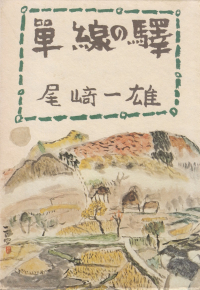 單線の驛
尾崎一雄